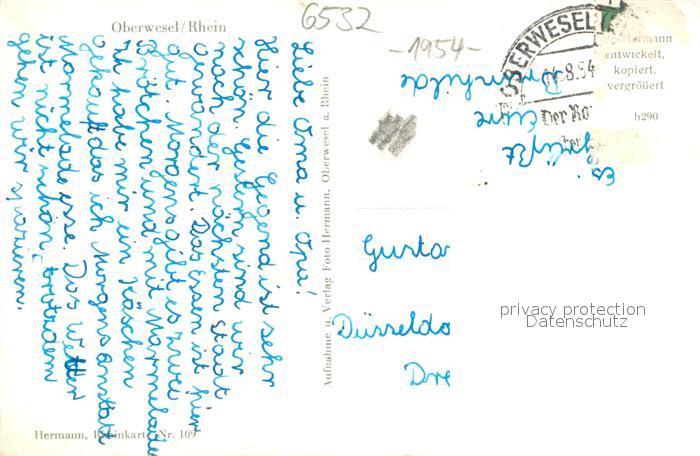 Oberwesel/Rhein
6532
-1954-
OBERWESEL
.8.54
Hermann
entwickelt,
kopiert,
vergrößert
h290
Liebe Oma u. Opa!
Hier die Gegend ist sehr
schön. Gestern sind wir
nach der nächsten Stadt
gewandert. Das Essen ist hier
gut. Morgens gibt es zwei
Brötchen und mit Marmelade
Ich habe mir ein Käschen
gekauft das ich Morgens anstatt
Marmelade esse. Das Wetter
ist nicht schön, trotzdem
gehen wir spazieren.
Es
grüßt
Eure
Brunhilde
Aufnahme u. Verlag Foto-Hermann, Oberwesel a. Rhein
Gusta
Düsseldo
Dre
privacy protection
Datenschutz
Hermann, Rheinkarte Nr. 109